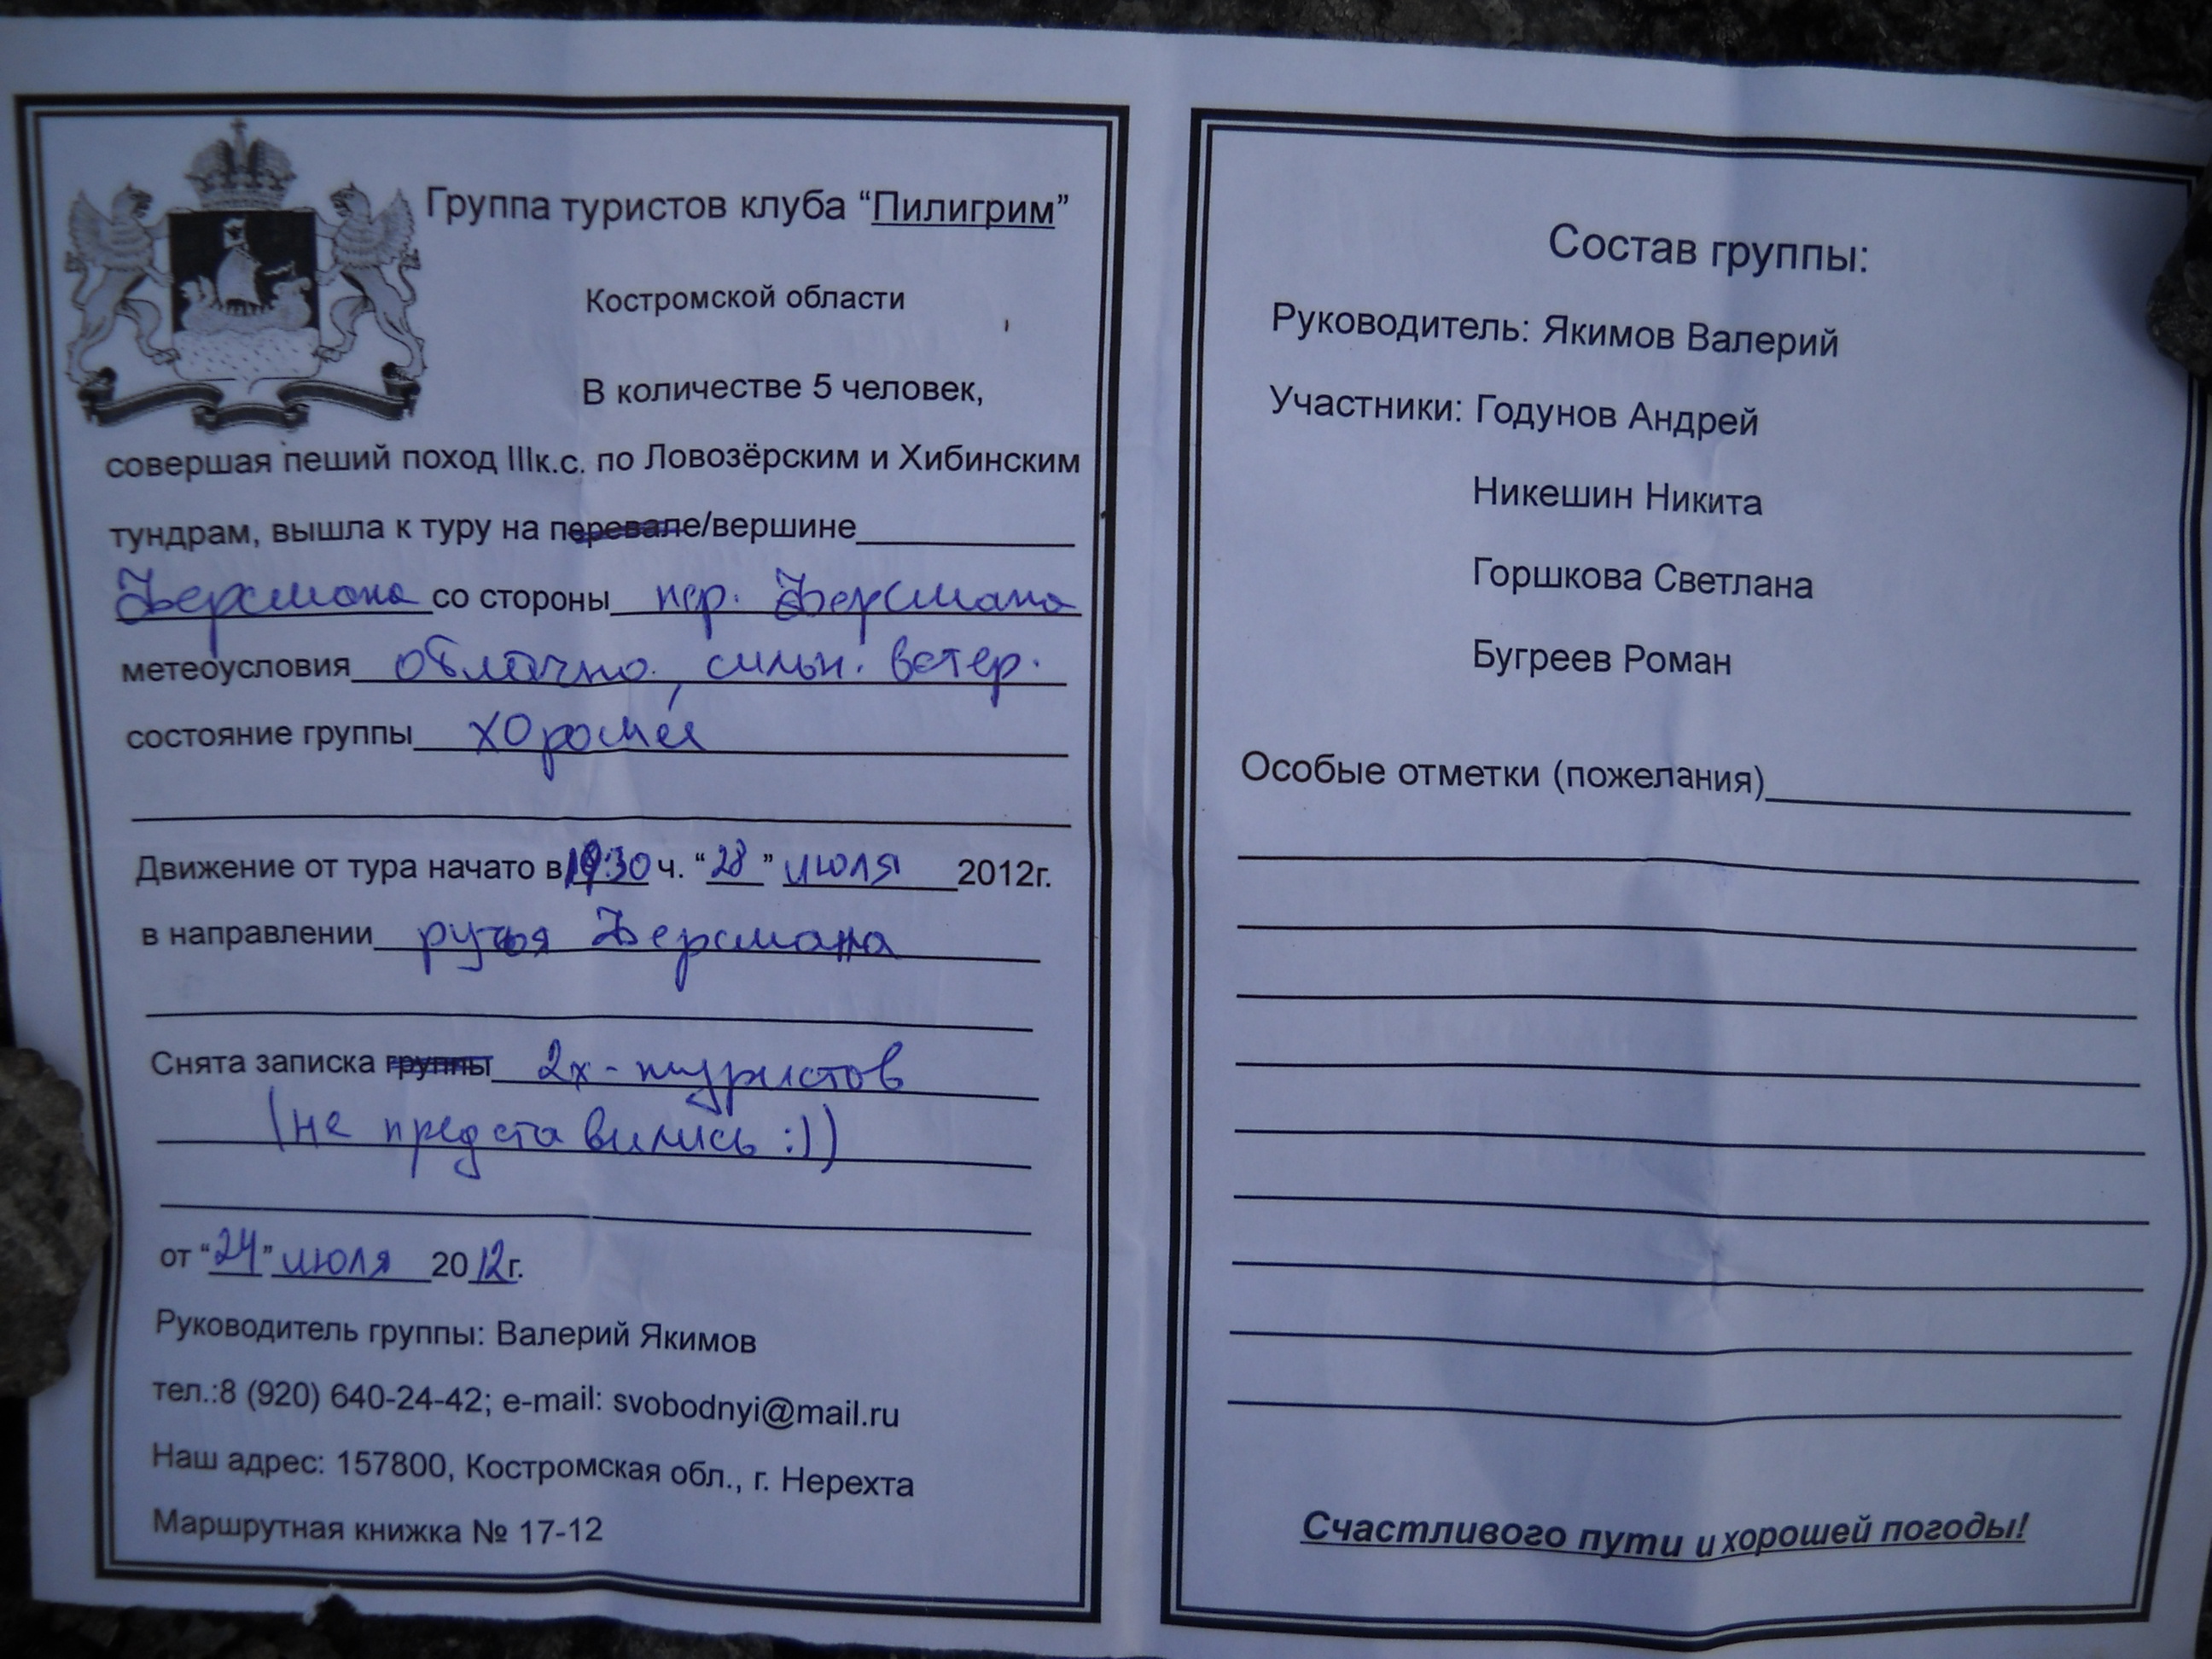 Группа туристов клуба “Пилигрим”
Костромской области
В количестве 5 человек,
совершая пеший поход IIIк.с. по Ловозёрским и Хибинским
тундрам, вышла к туру на перевале/вершине
Ферсмана со стороны пер. Ферсмана
метеоусловия облачно, сильн. ветер.
состояние группы хорошее
Движение от тура начато в 19:30 ч. “28” июля 2012г.
в направлении ручья Ферсмана
Снята записка группы 2х-туристов
(не представились :))
от “24” июля 2012г.
Руководитель группы: Валерий Якимов
тел.:8 (920) 640-24-42; e-mail: svobodnyi@mail.ru
Наш адрес: 157800, Костромская обл., г. Нерехта
Маршрутная книжка № 17-12
Состав группы:
Руководитель: Якимов Валерий
Участники: Годунов Андрей
Никешин Никита
Горшкова Светлана
Бугреев Роман
Особые отметки (пожелания)
Счастливого пути и хорошей погоды!